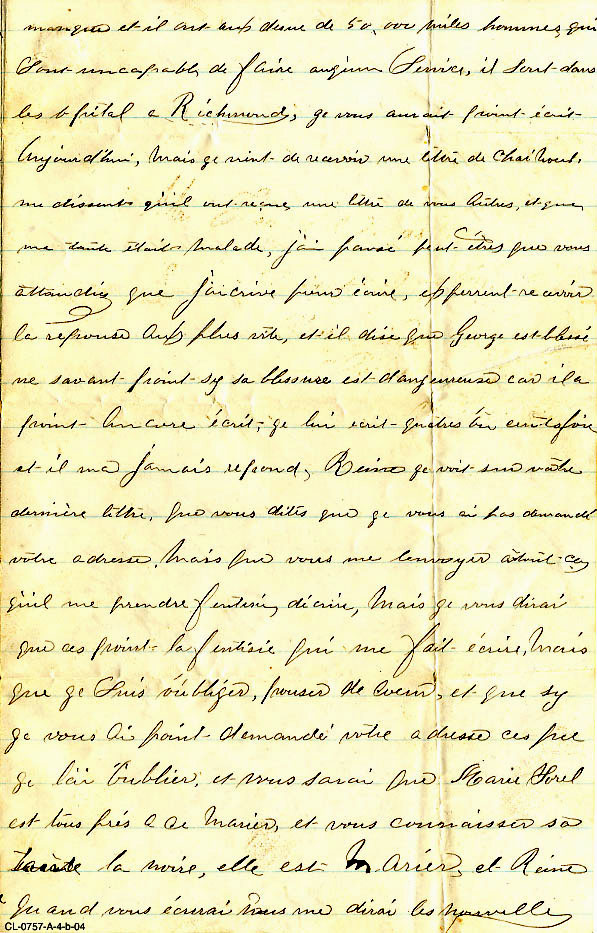 manque et il ont aup desue de 50,000 miles hommes, qui
sont uncapable, de faire augun Service, il sont dans
les hpital a Richmond, ge vous aurait point écrit
Aujourd'hui, Mais ge vint de recevoir une lêtre de
me dissant qu'il ont reçue, une lêtre de vous Autres, et que
ma tante étaits Malade, j'ai pausé peut-êtres que vous
attandiez que j'aicrive pour écrire, epperrent recevoir
la reponse Aup plus vite, et il dise que George est blessé
ne savant point sy sa blessure est dangerreuse car il a
point Ancore écrit, ge lui ecrit quatres ou fois
et il ma jamais repond, Reine ge voit sur vôtre
dernière lêttre, que vous dites que ge vous ai pas demandé
vôtre adresse, Mais que vous me l'envoyer atout ca,
qu'il me prendre fentesie, décrire, Mais ge vous dirai
que ces point la fentisie qui me fait écrire, Mais
que ge suis oubliger, pouser de coeur, et que sy
ge vous ai point demandé vôtre adresse ces que
ge l'ai oublier, et vous savai que Marie Sorel
est tous près a ce Marier, et vous connaisser sa
tante la noire, elle est Marier, et Reine
Quand vous écrirai vous me dirai les nouvelle,
CL-0757-A-4-b-04